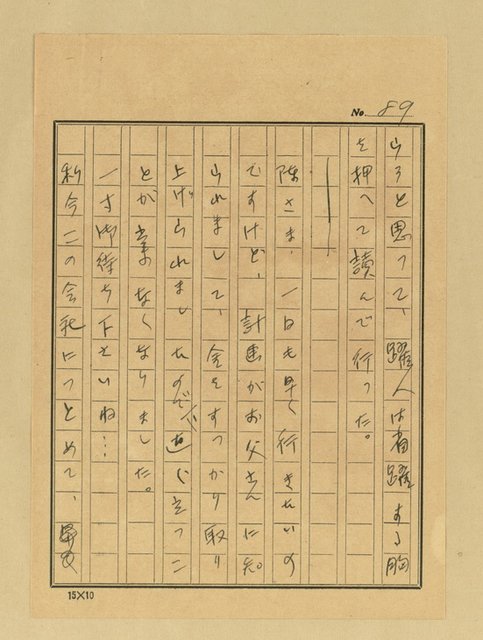 No. 89
らうと思って、躍人は雀躍する胸
を押へて讀んで行った。
陳さま、一日も早く行きたいの
ですけど、計画がお父さんに知
られまして、金をすっかり取り
上げられましたので、逃じ立つこ
とが出来なくなりました。
一寸御待ち下さいね…
私今この会社につとめて、
15×10